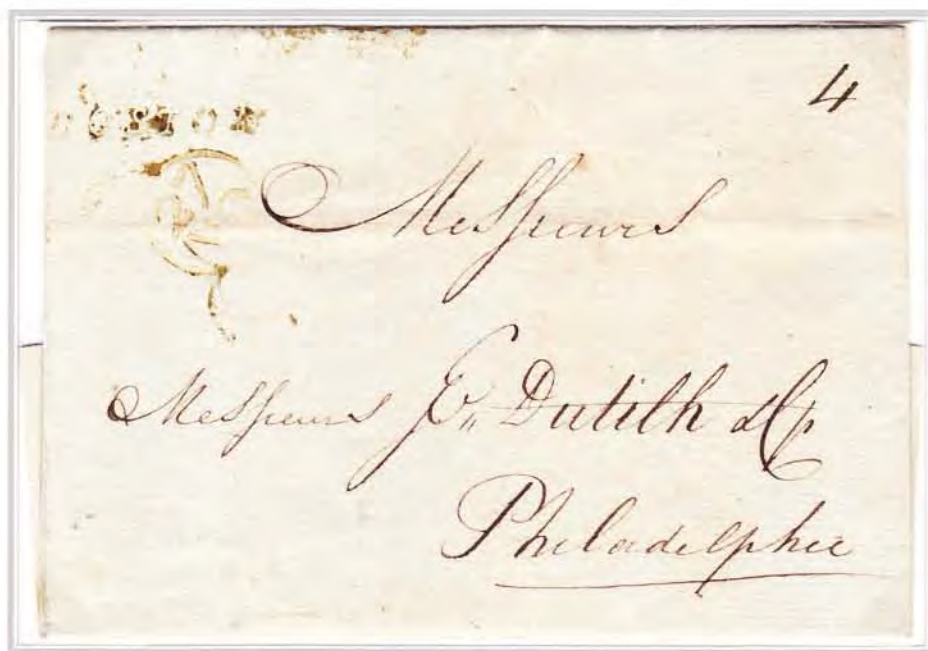 4
BOSTON
Messieurs
Messieurs E. Dutilh & Cp
Philadelphie